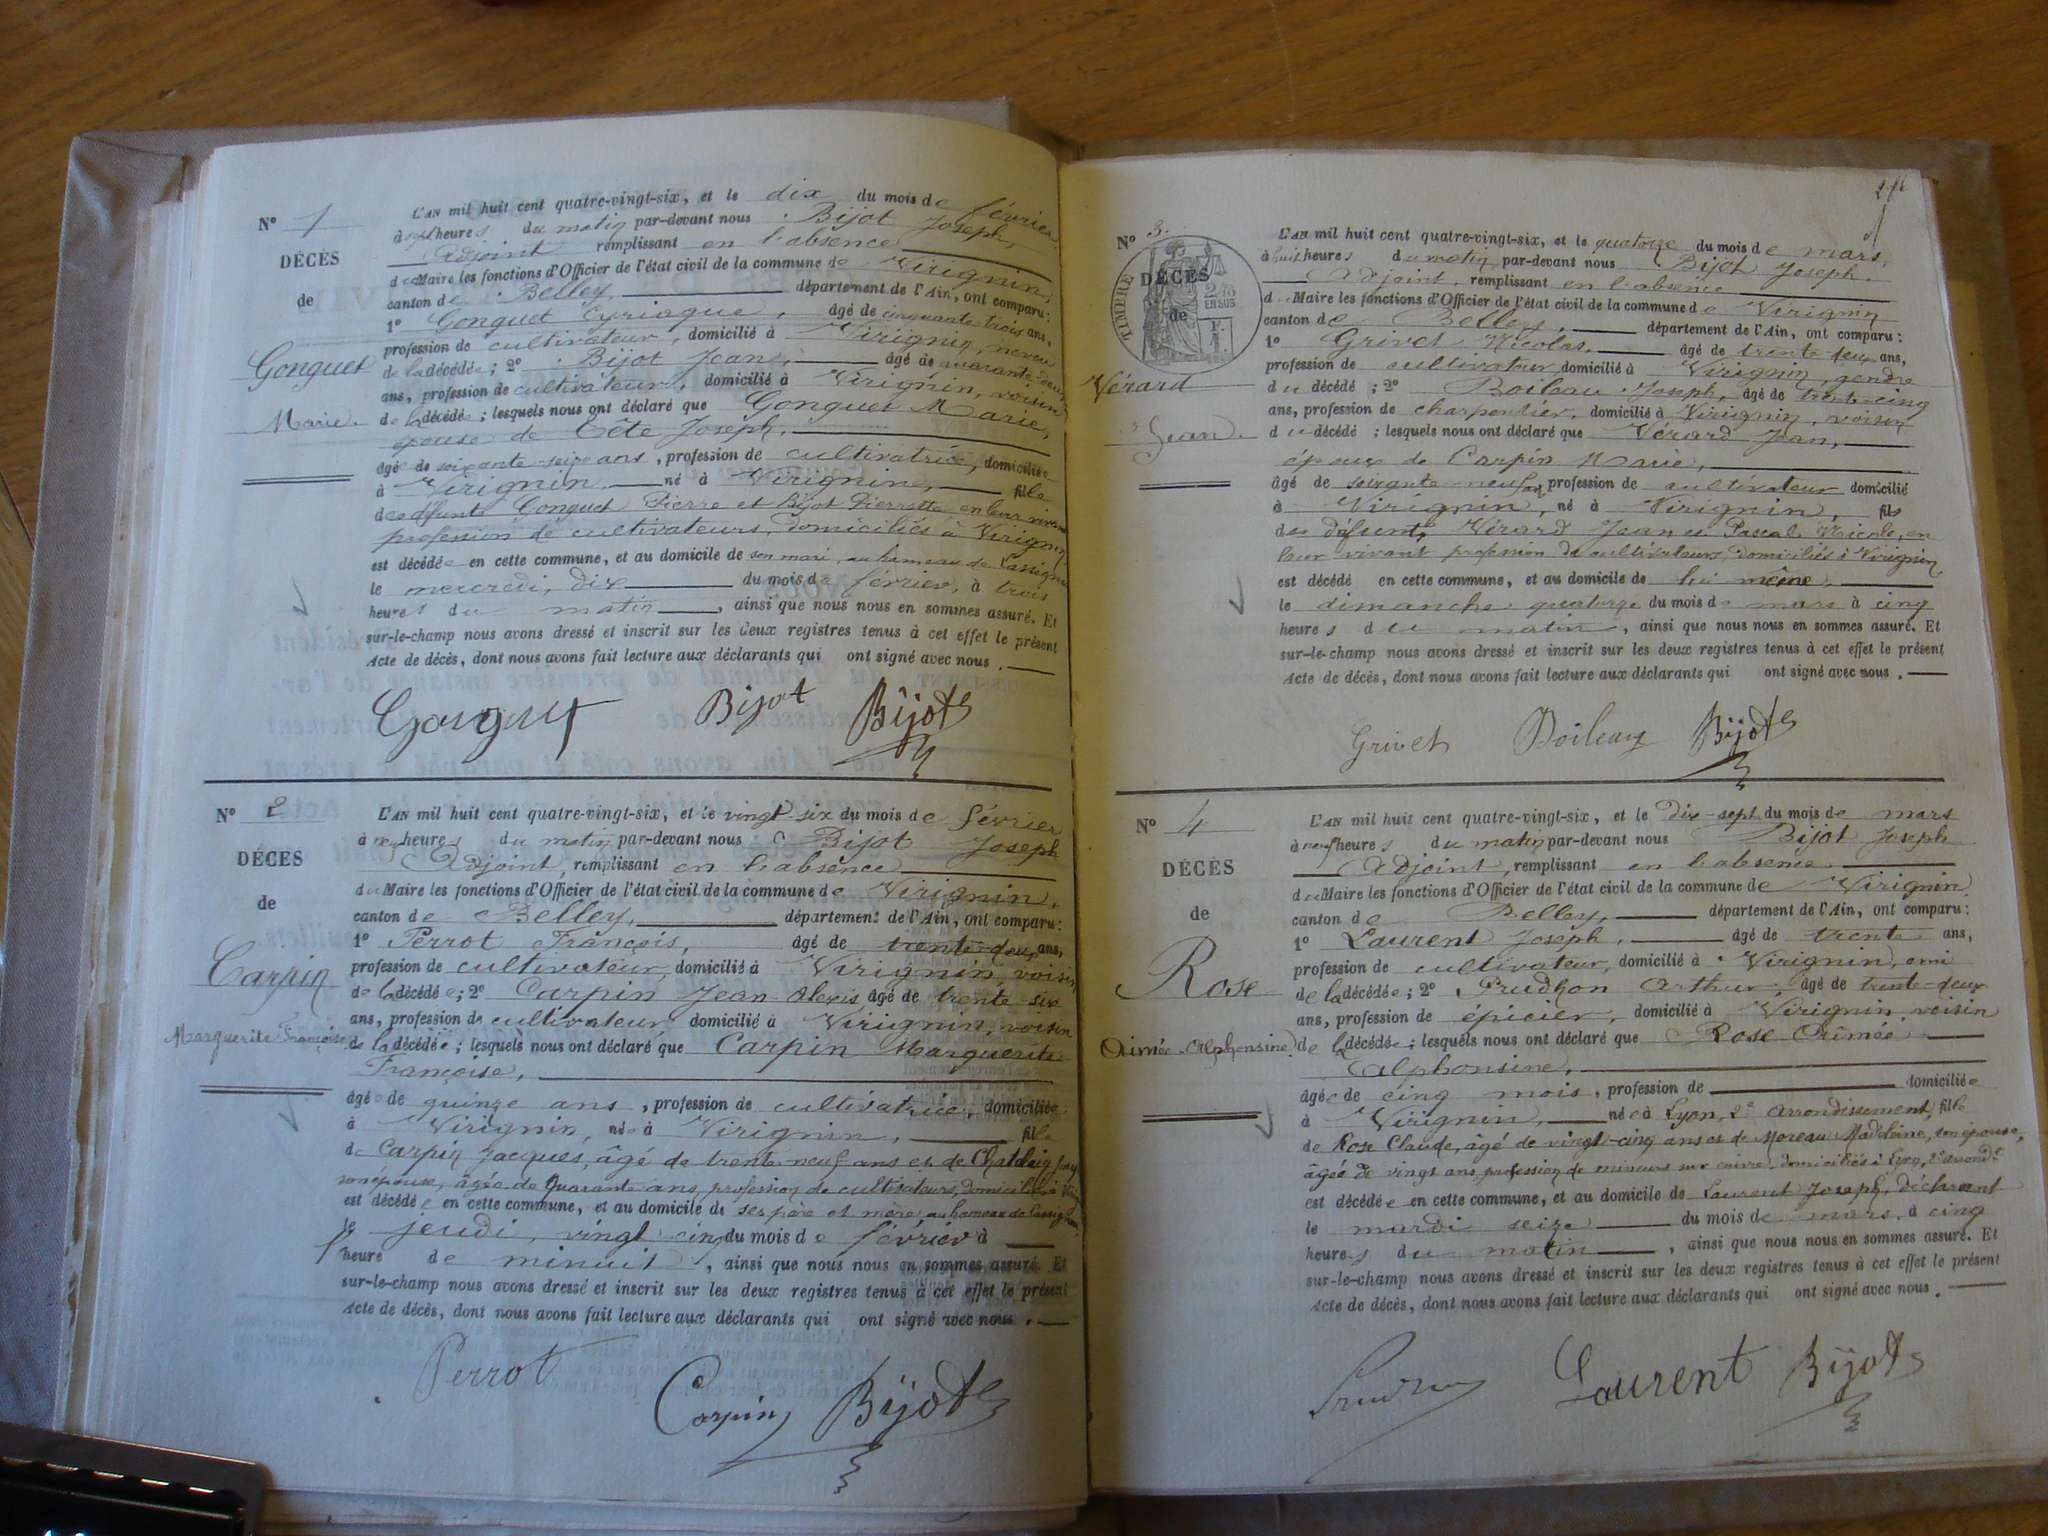 N° 1
DÉCÈS
de
Gonguet
Marie.
L'AN mil huit cent quatre-vingt-six, et le dix du mois de février
à sept heures du matin par-devant nous Bijot Joseph,
Adjoint remplissant en l'absence
du Maire les fonctions d'Officier de l'état civil de la commune de Virignin,
canton de Belley, département de l'Ain, ont comparu :
1° Gonguet Cyriaque, âgé de cinquante-trois ans,
profession de cultivateur, domicilié à Virignin, neveu
de la décédée ; 2° Bijot Jean, âgé de quarante-deux
ans, profession de cultivateur, domicilié à Virignin, voisin
de la décédé ; lesquels nous ont déclaré que Gonguet Marie,
épouse de Tête Joseph,
âgé de soixante-seize ans, profession de cultivatrice, domiciliée
à Virignin, né à Virignin, fille
des défunts Gonguet Pierre et Bijot Pierrette, en leur vivant
profession de cultivateurs, domiciliés à Virignin
est décédée en cette commune, et au domicile de son mari, au hameau de Lassignieu
le mercredi, dix du mois de février, à trois
heures du matin, ainsi que nous nous en sommes assuré. Et
sur-le-champ nous avons dressé et inscrit sur les deux registres tenus à cet effet le présent
Acte de décès, dont nous avons fait lecture aux déclarants qui ont signé avec nous.
Gonguet Bijot Bijot
N° 2
DÉCÈS
de
Carpin
Marguerite Françoise
L'AN mil huit cent quatre-vingt-six, et le vingt-six du mois de février
à neuf heures du matin par-devant nous Bijot Joseph
Adjoint, remplissant en l'absence
du Maire les fonctions d'Officier de l'état civil de la commune de Virignin,
canton de Belley, département de l'Ain, ont comparu :
1° Perrot François, âgé de trente-deux ans,
profession de cultivateur, domicilié à Virignin, voisin
de la décédée ; 2° Carpin Jean-Alexis âgé de trente-six
ans, profession de cultivateur domicilié à Virignin, voisin
de la décédée ; lesquels nous ont déclaré que Carpin Marguerite
Françoise,
âgée de quinze ans, profession de cultivatrice, domiciliée
à Virignin, née à Virignin, fille
de Carpin Jacques, âgé de trente-neuf ans et de Chatelain
son épouse, âgée de quarante ans, profession de cultivateurs, domiciliés à
est décédée en cette commune, et au domicile de ses père et mère au hameau de Lassignieu
le jeudi, vingt cinq du mois de février à
heure de minuit, ainsi que nous nous en sommes assuré. Et
sur-le-champ nous avons dressé et inscrit sur les deux registres tenus à cet effet le présent
Acte de décès, dont nous avons fait lecture aux déclarants qui ont signé avec nous.
Perrot Carpin Bijot
N° 3.
TIMBRE
2/10 EN SUS
DÉCÈS
de
Vérard
Jean.
L'AN mil huit cent quatre-vingt-six, et le quatorze du mois de mars,
à huit heures du matin, par-devant nous Bijot Joseph
Adjoint, remplissant en l'absence
du Maire les fonctions d'Officier de l'état civil de la commune de Virignin
canton de Belley, département de l'Ain, ont comparu :
1° Grivet Nicolas, âgé de trente-deux ans,
profession de cultivateur, domicilié à Virignin, gendre
du décédé ; 2° Boileau Joseph, âgé de trente-cinq
ans, profession de charpentier, domicilié à Virignin, voisin
du décédé ; lesquels nous ont déclaré que Vérard Jean,
époux de Carpin Marie,
âgé de soixante-neuf ans, profession de cultivateur domicilié
à Virignin, né à Virignin, fils
des défunts Vérard Jean et Pascal Nicole, en
leur vivant profession de cultivateurs, domiciliés à Virignin,
est décédé en cette commune, et au domicile de lui même,
le dimanche quatorze du mois de mars à cinq
heures du matin, ainsi que nous nous en sommes assuré. Et
sur-le-champ nous avons dressé et inscrit sur les deux registres tenus à cet effet le présent
Acte de décès, dont nous avons fait lecture aux déclarants qui ont signé avec nous.
Grivet Boileau Bijot
N° 4
DÉCÈS
de
Rose
Aimée Alphonsine
L'AN mil huit cent quatre-vingt-six, et le Dix-sept du mois de mars
à neuf heures du matin par-devant nous Bijot Joseph
Adjoint, remplissant en l'absence
du Maire les fonctions d'Officier de l'état civil de la commune de Virignin
canton de Belley, département de l'Ain, ont comparu :
1° Laurent Joseph, âgé de trente ans,
profession de cultivateur, domicilié à Virignin, ami
de la décédée ; 2° Prudhon Arthur, âgé de trente-deux
ans, profession de épicier, domicilié à Virignin, voisin
de la décédée ; lesquels nous ont déclaré que Rose Aimée
Alphonsine,
âgée de cinq mois, profession de domiciliée
à Virignin, née à Lyon, 2e arrondissement, fille
de Rose Claude, âgé de vingt-cinq ans et de Moreau Madeleine, son épouse,
âgée de vingt ans, profession de mineurs sur cuivre, domiciliés à Lyon, 2e arrondt
est décédée en cette commune, et au domicile de Laurent Joseph, déclarant
le mardi seize du mois de mars, à cinq
heures du matin, ainsi que nous nous en sommes assuré. Et
sur-le-champ nous avons dressé et inscrit sur les deux registres tenus à cet effet le présent
Acte de décès, dont nous avons fait lecture aux déclarants qui ont signé avec nous.
Prudhon Laurent Bijot